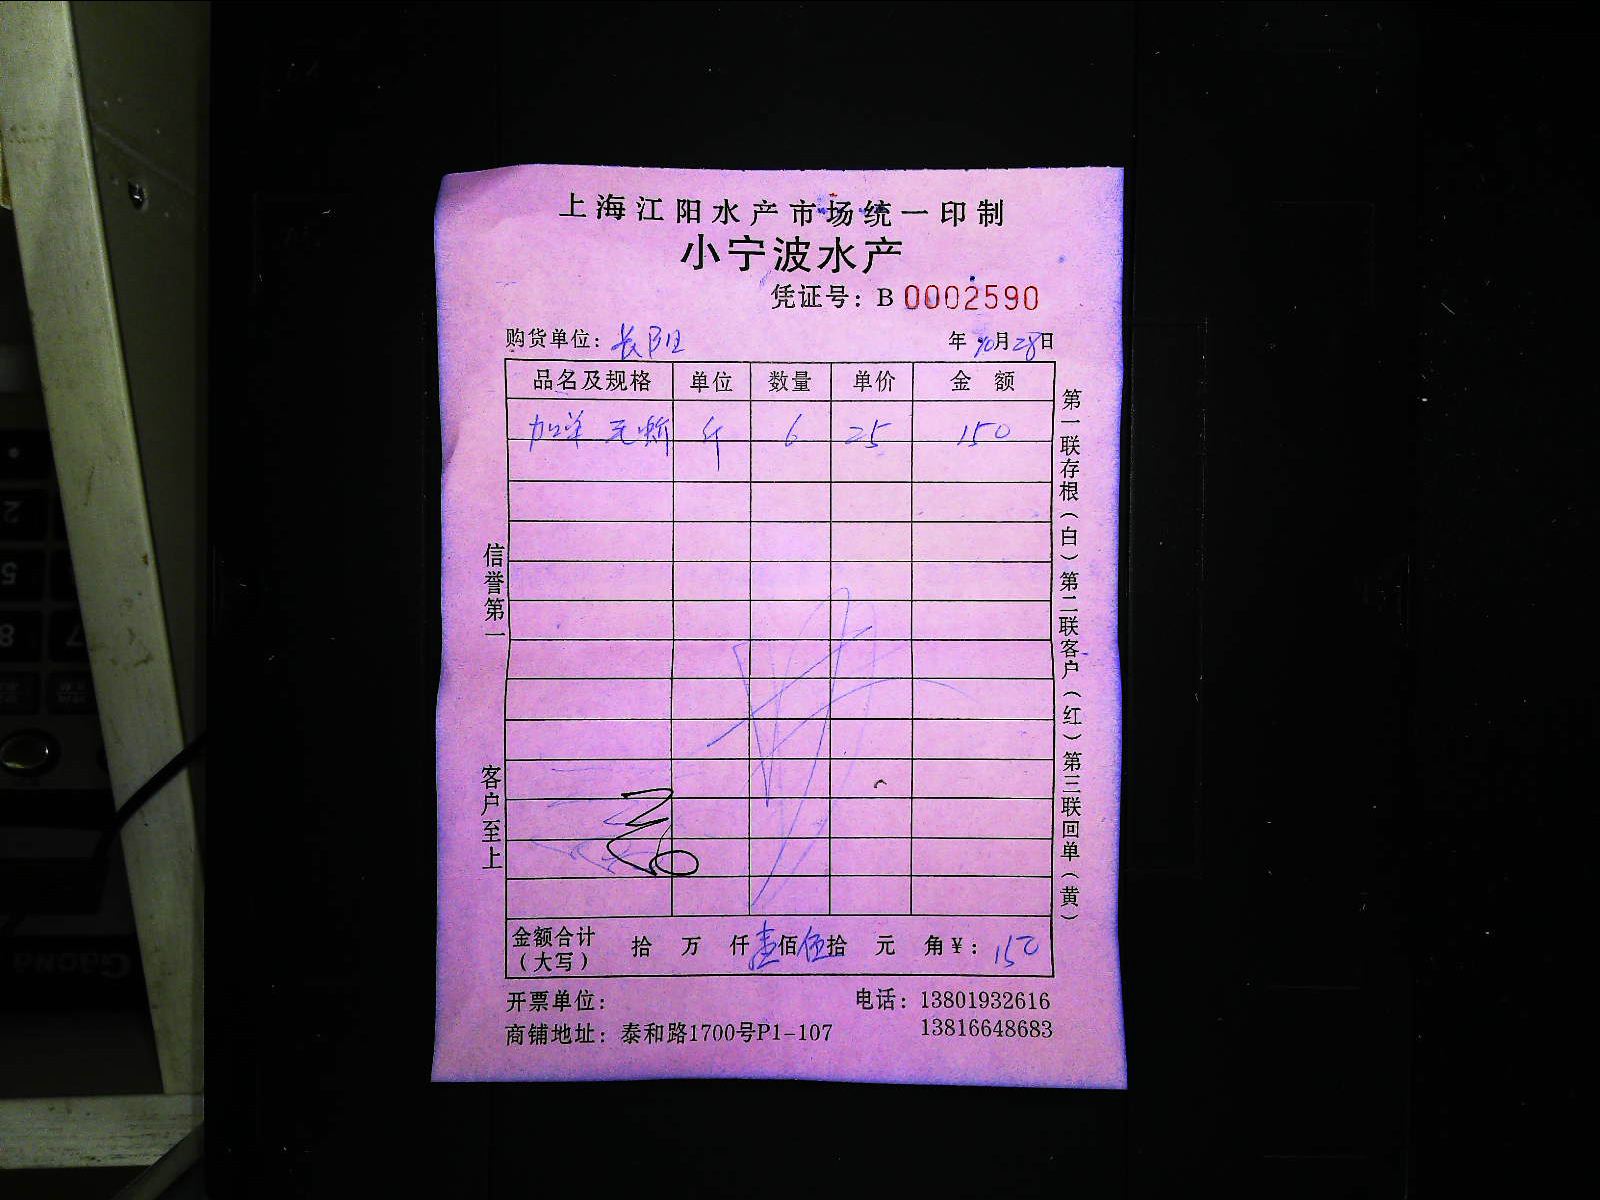 上海江阳水产市场统一印制
小宁波水产
凭证号：B 0002590
购货单位：长阳 年 10月28日
品名及规格 单位 数量 单价 金额
斤 6 25 150
信誉第一
客户至上
第一联存根（白）第二联客户（红）第三联回单（黄）
金额合计（大写） 拾 万 仟壹佰伍拾 元 角￥：150
开票单位： 电话：13801932616
商铺地址：泰和路1700号P1-107 13816648683